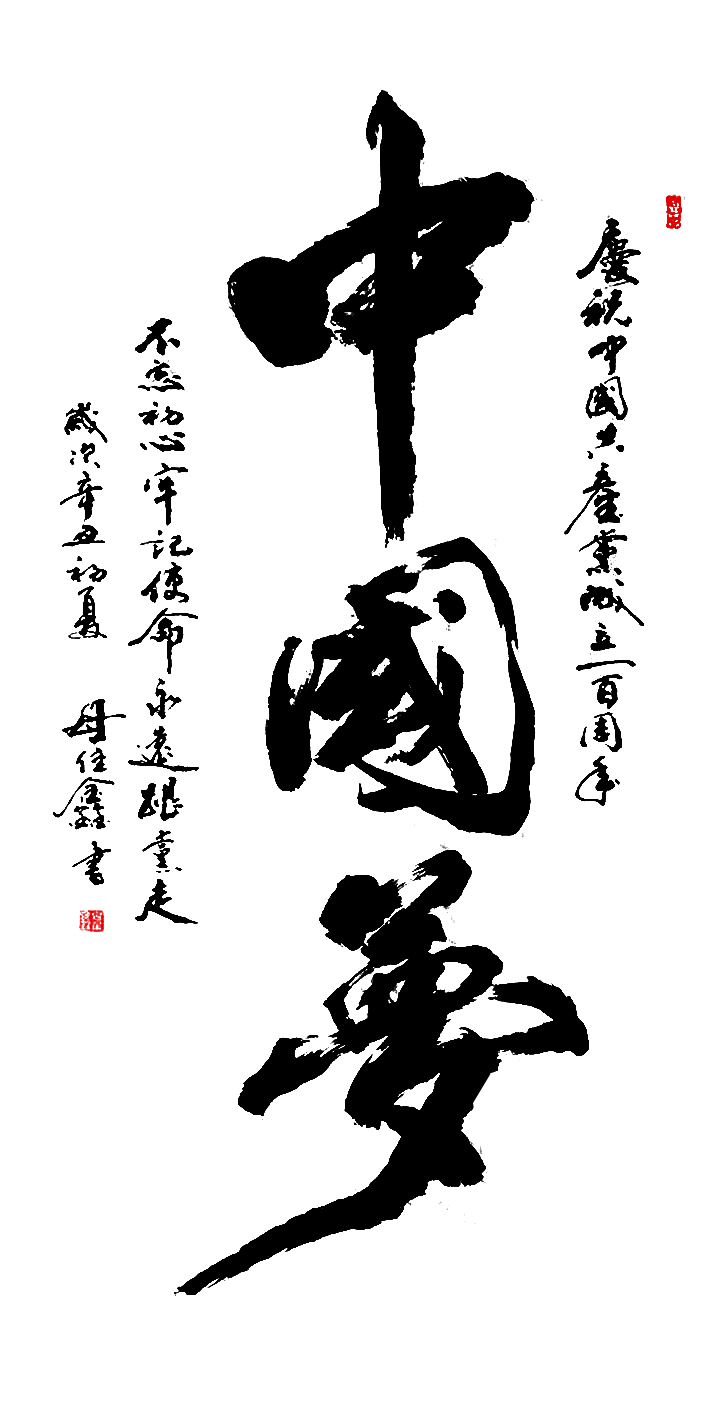 慶祝中國共產黨成立一百周年
中國夢
不忘初心牢記使命永遠跟黨走
歲次辛丑初夏 母住鑫書